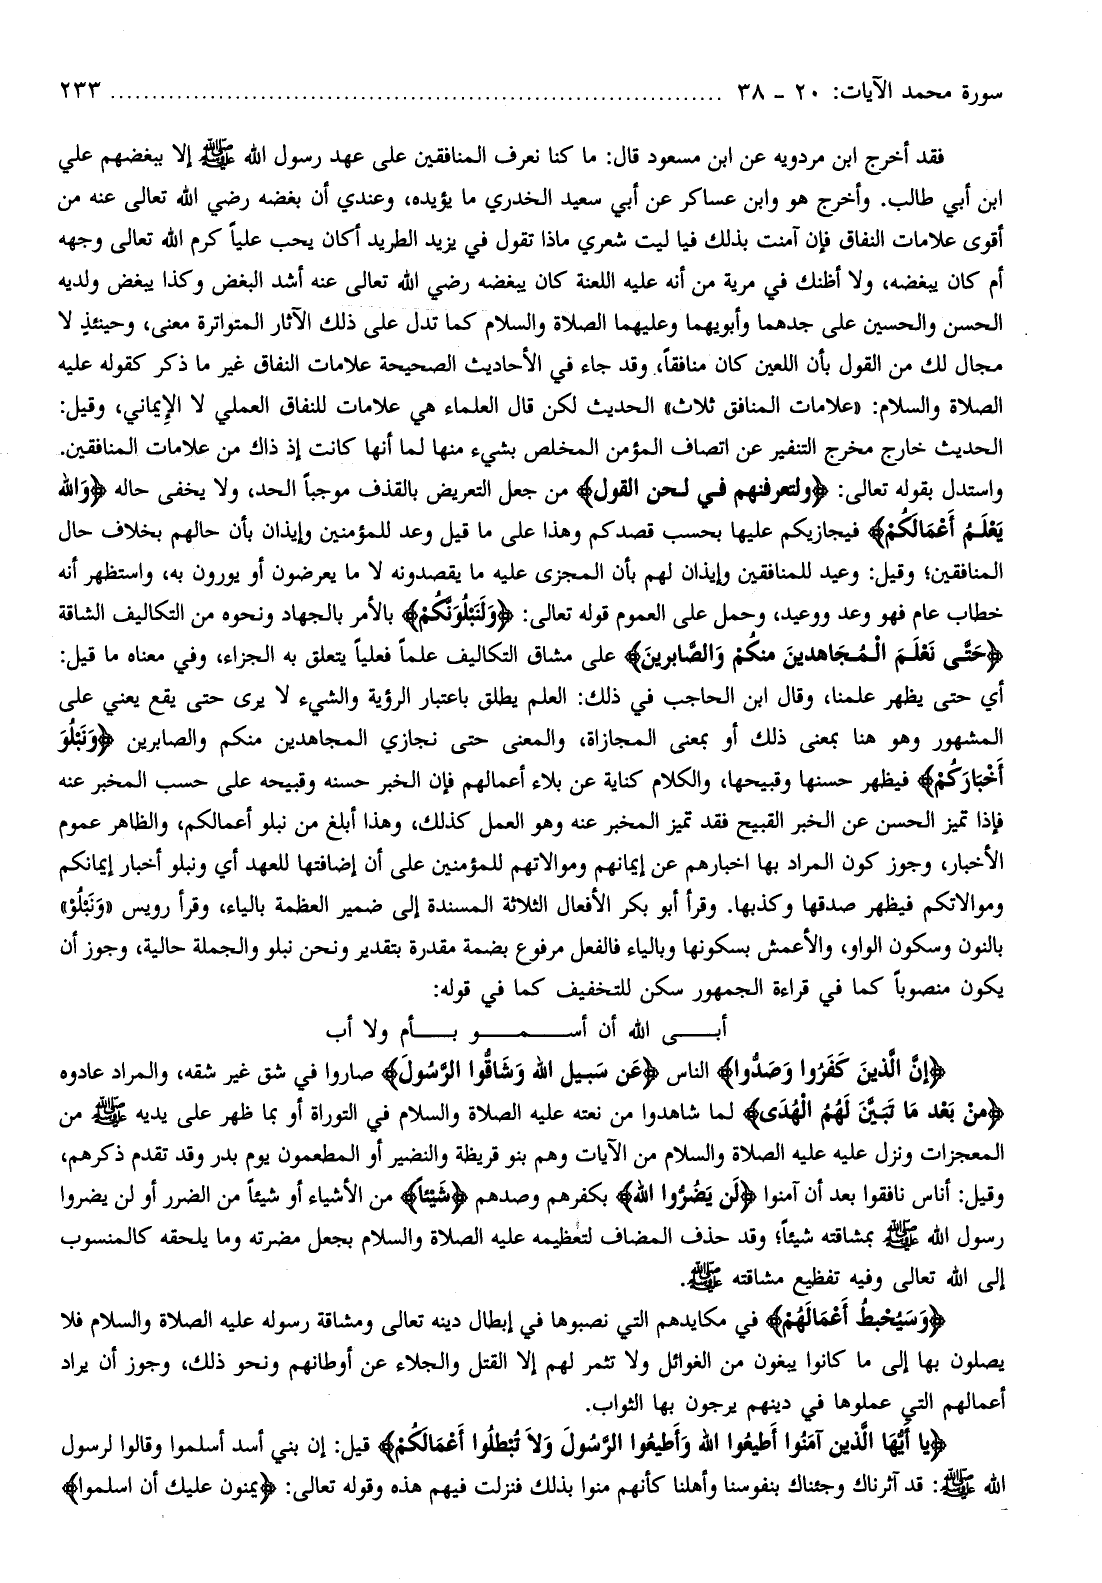 سورة محمد الآيات: ٢٠ - ٣٨ ........................................................................ ٢٣٣
فقد أخرج ابن مردويه عن ابن مسعود قال: ما كنا نعرف المنافقين على عهد رسول الله ﷺ إلا ببغضهم علي
ابن أبي طالب. وأخرج هو وابن عساكر عن أبي سعيد الخدري ما يؤيده، وعندي أن بغضه رضي الله تعالى عنه من
أقوى علامات النفاق فإن آمنت بذلك فيا ليت شعري ماذا تقول في يزيد الطريد أكان يحب علياً كرم الله تعالى وجهه
أم كان يبغضه، ولا أظنك في مرية من أنه عليه اللعنة كان يبغضه رضي الله تعالى عنه أشد البغض وكذا يبغض ولديه
الحسن والحسين على جدهما وأبويهما وعليهما الصلاة والسلام كما تدل على ذلك الآثار المتواترة معنى، وحينئذٍ لا
مجال لك من القول بأن اللعين كان منافقاً، وقد جاء في الأحاديث الصحيحة علامات النفاق غير ما ذكر كقوله عليه
الصلاة والسلام: «علامات المنافق ثلاث» الحديث لكن قال العلماء هي علامات للنفاق العملي لا الإِيماني، وقيل:
الحديث خارج مخرج التنفير عن اتصاف المؤمن المخلص بشيء منها لما أنها كانت إذ ذاك من علامات المنافقين.
واستدل بقوله تعالى: ﴿ولتعرفنهم في لحن القول﴾ من جعل التعريض بالقذف موجباً الحد، ولا يخفى حاله ﴿وَالله
يَعْلَمُ أَعْمَالَكُمْ﴾ فيجازيكم عليها بحسب قصدكم وهذا على ما قيل وعد للمؤمنين وإيذان بأن حالهم بخلاف حال
المنافقين؛ وقيل: وعيد للمنافقين وإيذان لهم بأن المجزى عليه ما يقصدونه لا ما يعرضون أو يورون به، واستظهر أنه
خطاب عام فهو وعد ووعيد، وحمل على العموم قوله تعالى: ﴿وَلَنَبْلُوَنَّكُمْ﴾ بالأمر بالجهاد ونحوه من التكاليف الشاقة
﴿حَتَّى نَعْلَمَ الْمُجَاهدينَ منكُمْ وَالصَّابرينَ﴾ على مشاق التكاليف علماً فعلياً يتعلق به الجزاء، وفي معناه ما قيل:
أي حتى يظهر علمنا، وقال ابن الحاجب في ذلك: العلم يطلق باعتبار الرؤية والشيء لا يرى حتى يقع يعني على
المشهور وهو هنا بمعنى ذلك أو بمعنى المجازاة، والمعنى حتى نجازي المجاهدين منكم والصابرين ﴿وَنَبْلُوَ
أَخْبَارَكُمْ﴾ فيظهر حسنها وقبيحها، والكلام كناية عن بلاء أعمالهم فإن الخبر حسنه وقبيحه على حسب المخبر عنه
فإذا تميز الحسن عن الخبر القبيح فقد تميز المخبر عنه وهو العمل كذلك، وهذا أبلغ من نبلو أعمالكم، والظاهر عموم
الأخبار، وجوز كون المراد بها اخبارهم عن إيمانهم وموالاتهم للمؤمنين على أن إضافتها للعهد أي ونبلو أخبار إيمانكم
وموالاتكم فيظهر صدقها وكذبها. وقرأ أبو بكر الأفعال الثلاثة المسندة إلى ضمير العظمة بالياء، وقرأ رويس «وَنَبْلُوْ»
بالنون وسكون الواو، والأعمش بسكونها وبالياء فالفعل مرفوع بضمة مقدرة بتقدير ونحن نبلو والجملة حالية، وجوز أن
يكون منصوباً كما في قراءة الجمهور سكن للتخفيف كما في قوله:
أبى الله أن أسمو بأم ولا أب
﴿إنَّ الَّذينَ كَفَرُوا وَصَدُّوا﴾ الناس ﴿عَن سَبيل الله وَشَاقُّوا الرَّسُولَ﴾ صاروا في شق غير شقه، والمراد عادوه
﴿منْ بَعْد مَا تَبَيَّنَ لَهُمُ الْهُدَى﴾ لما شاهدوا من نعته عليه الصلاة والسلام في التوراة أو بما ظهر على يديه ﷺ من
المعجزات ونزل عليه عليه الصلاة والسلام من الآيات وهم بنو قريظة والنضير أو المطعمون يوم بدر وقد تقدم ذكرهم،
وقيل: أناس نافقوا بعد أن آمنوا ﴿لَن يَضُرُّوا الله﴾ بكفرهم وصدهم ﴿شَيْئاً﴾ من الأشياء أو شيئاً من الضرر أو لن يضروا
رسول الله ﷺ بمشاقته شيئاً؛ وقد حذف المضاف لتعظيمه عليه الصلاة والسلام بجعل مضرته وما يلحقه كالمنسوب
إلى الله تعالى وفيه تفظيع مشاقته ﷺ.
﴿وَسَيُحْبطُ أَعْمَالَهُمْ﴾ في مكايدهم التي نصبوها في إبطال دينه تعالى ومشاقة رسوله عليه الصلاة والسلام فلا
يصلون بها إلى ما كانوا يبغون من الغوائل ولا تثمر لهم إلا القتل والجلاء عن أوطانهم ونحو ذلك، وجوز أن يراد
أعمالهم التي عملوها في دينهم يرجون بها الثواب.
﴿يا أَيُّهَا الَّذين آمَنُوا أَطيعُوا الله وَأَطيعُوا الرَّسُولَ وَلاَ تُبْطلُوا أَعْمَالَكُمْ﴾ قيل: إن بني أسد أسلموا وقالوا لرسول
الله ﷺ: قد آثرناك وجئناك بنفوسنا وأهلنا كأنهم منوا بذلك فنزلت فيهم هذه وقوله تعالى: ﴿يمنون عليك أن اسلموا﴾